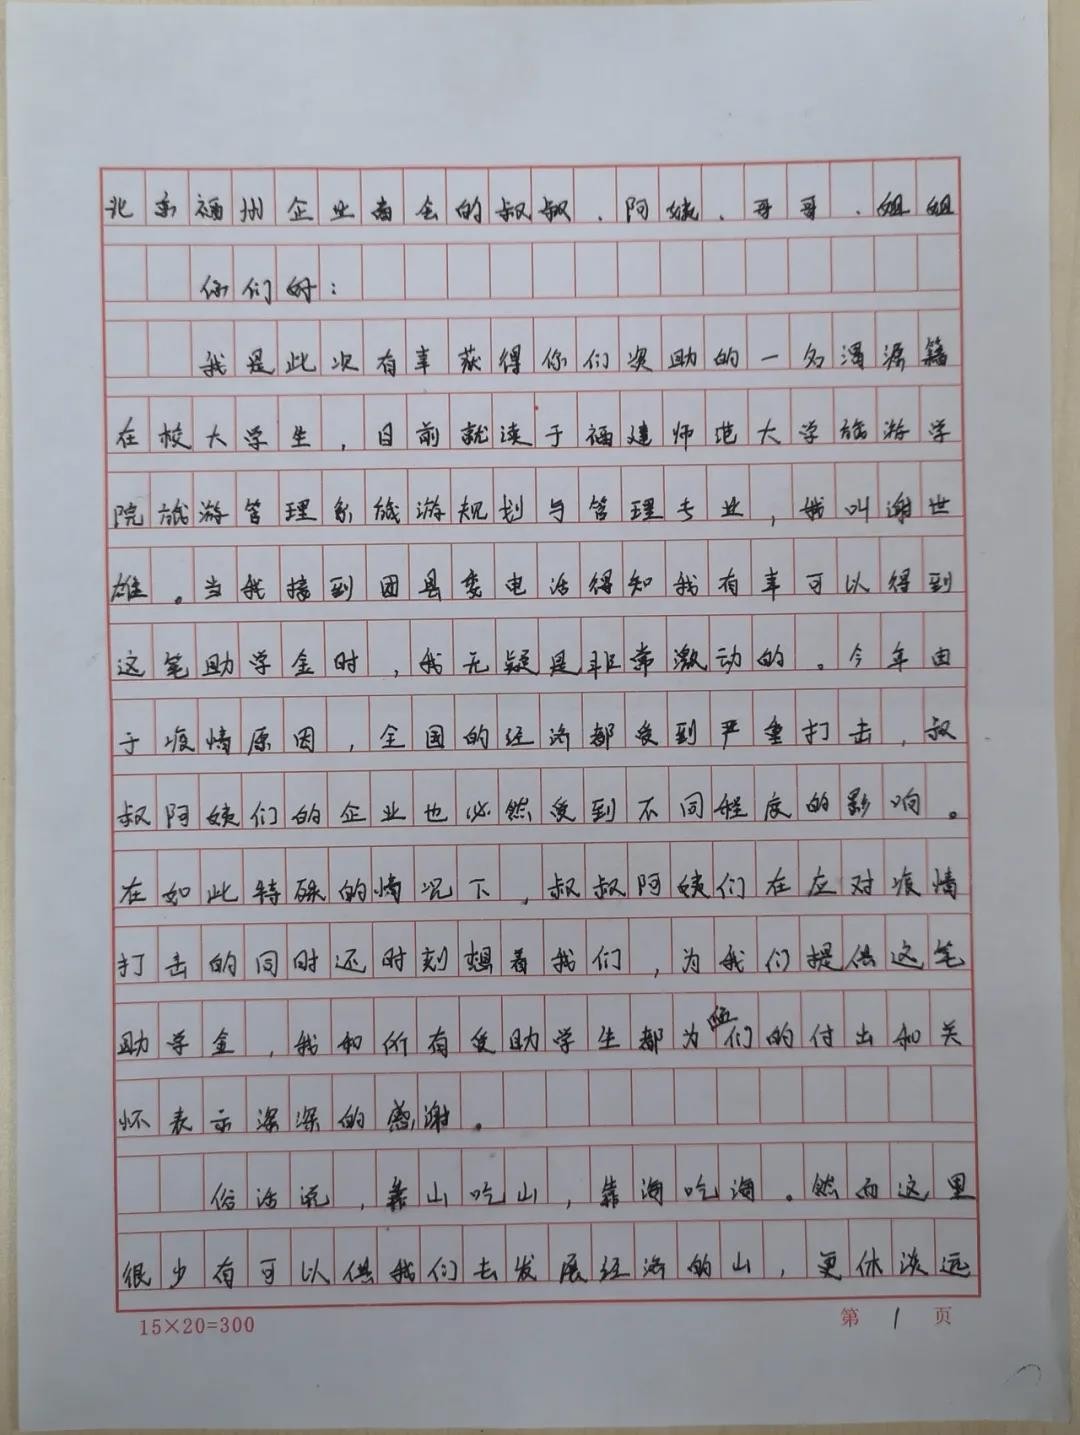 北京福州企业商会的叔叔、阿姨、哥哥、姐姐
你们好：
我是此次有幸获得你们资助的一名闽源籍
在校大学生，目前就读于福建师范大学旅游学
院旅游管理系旅游规划与管理专业，我叫谢世
雄。当我接到团县委电话得知我有幸可以得到
这笔助学金时，我无疑是非常激动的。今年由
于疫情原因，全国的经济都受到严重打击，叔
叔阿姨们的企业也必然受到不同程度的影响。
在如此特殊的情况下，叔叔阿姨们在应对疫情
打击的同时还时刻想着我们，为我们提供这笔
助学金，我和所有受助学生都为您们的付出和关
怀表示深深的感谢。
俗话说，靠山吃山，靠海吃海。然而这里
很少有可以供我们去发展经济的山，更休谈远
15×20=300
第1页